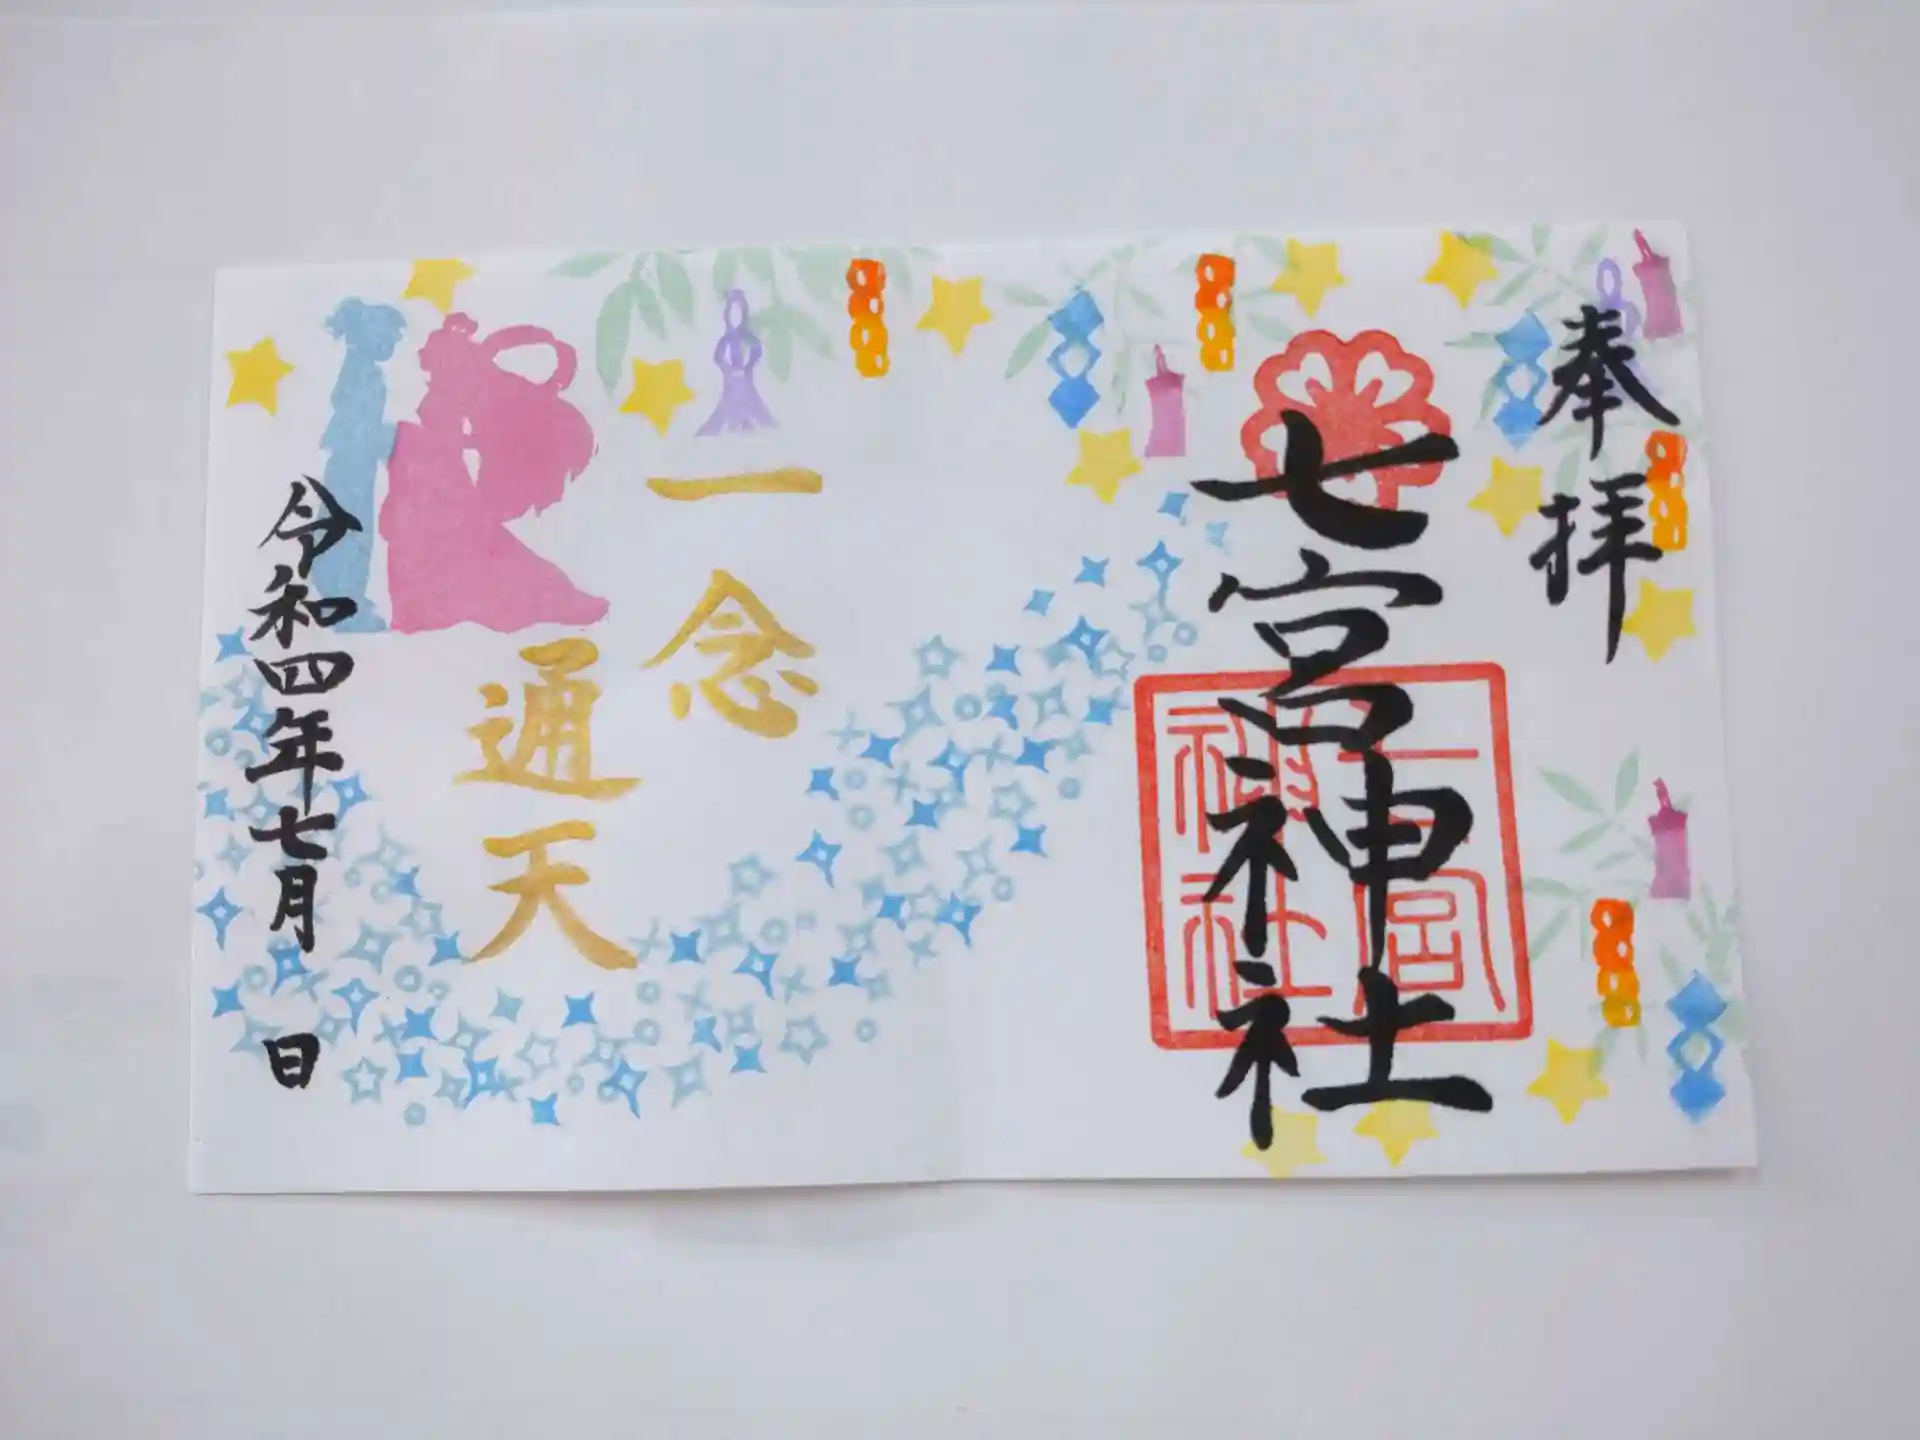 奉拝
七宮神社
七宮神社
一念
通天
令和四年七月 日